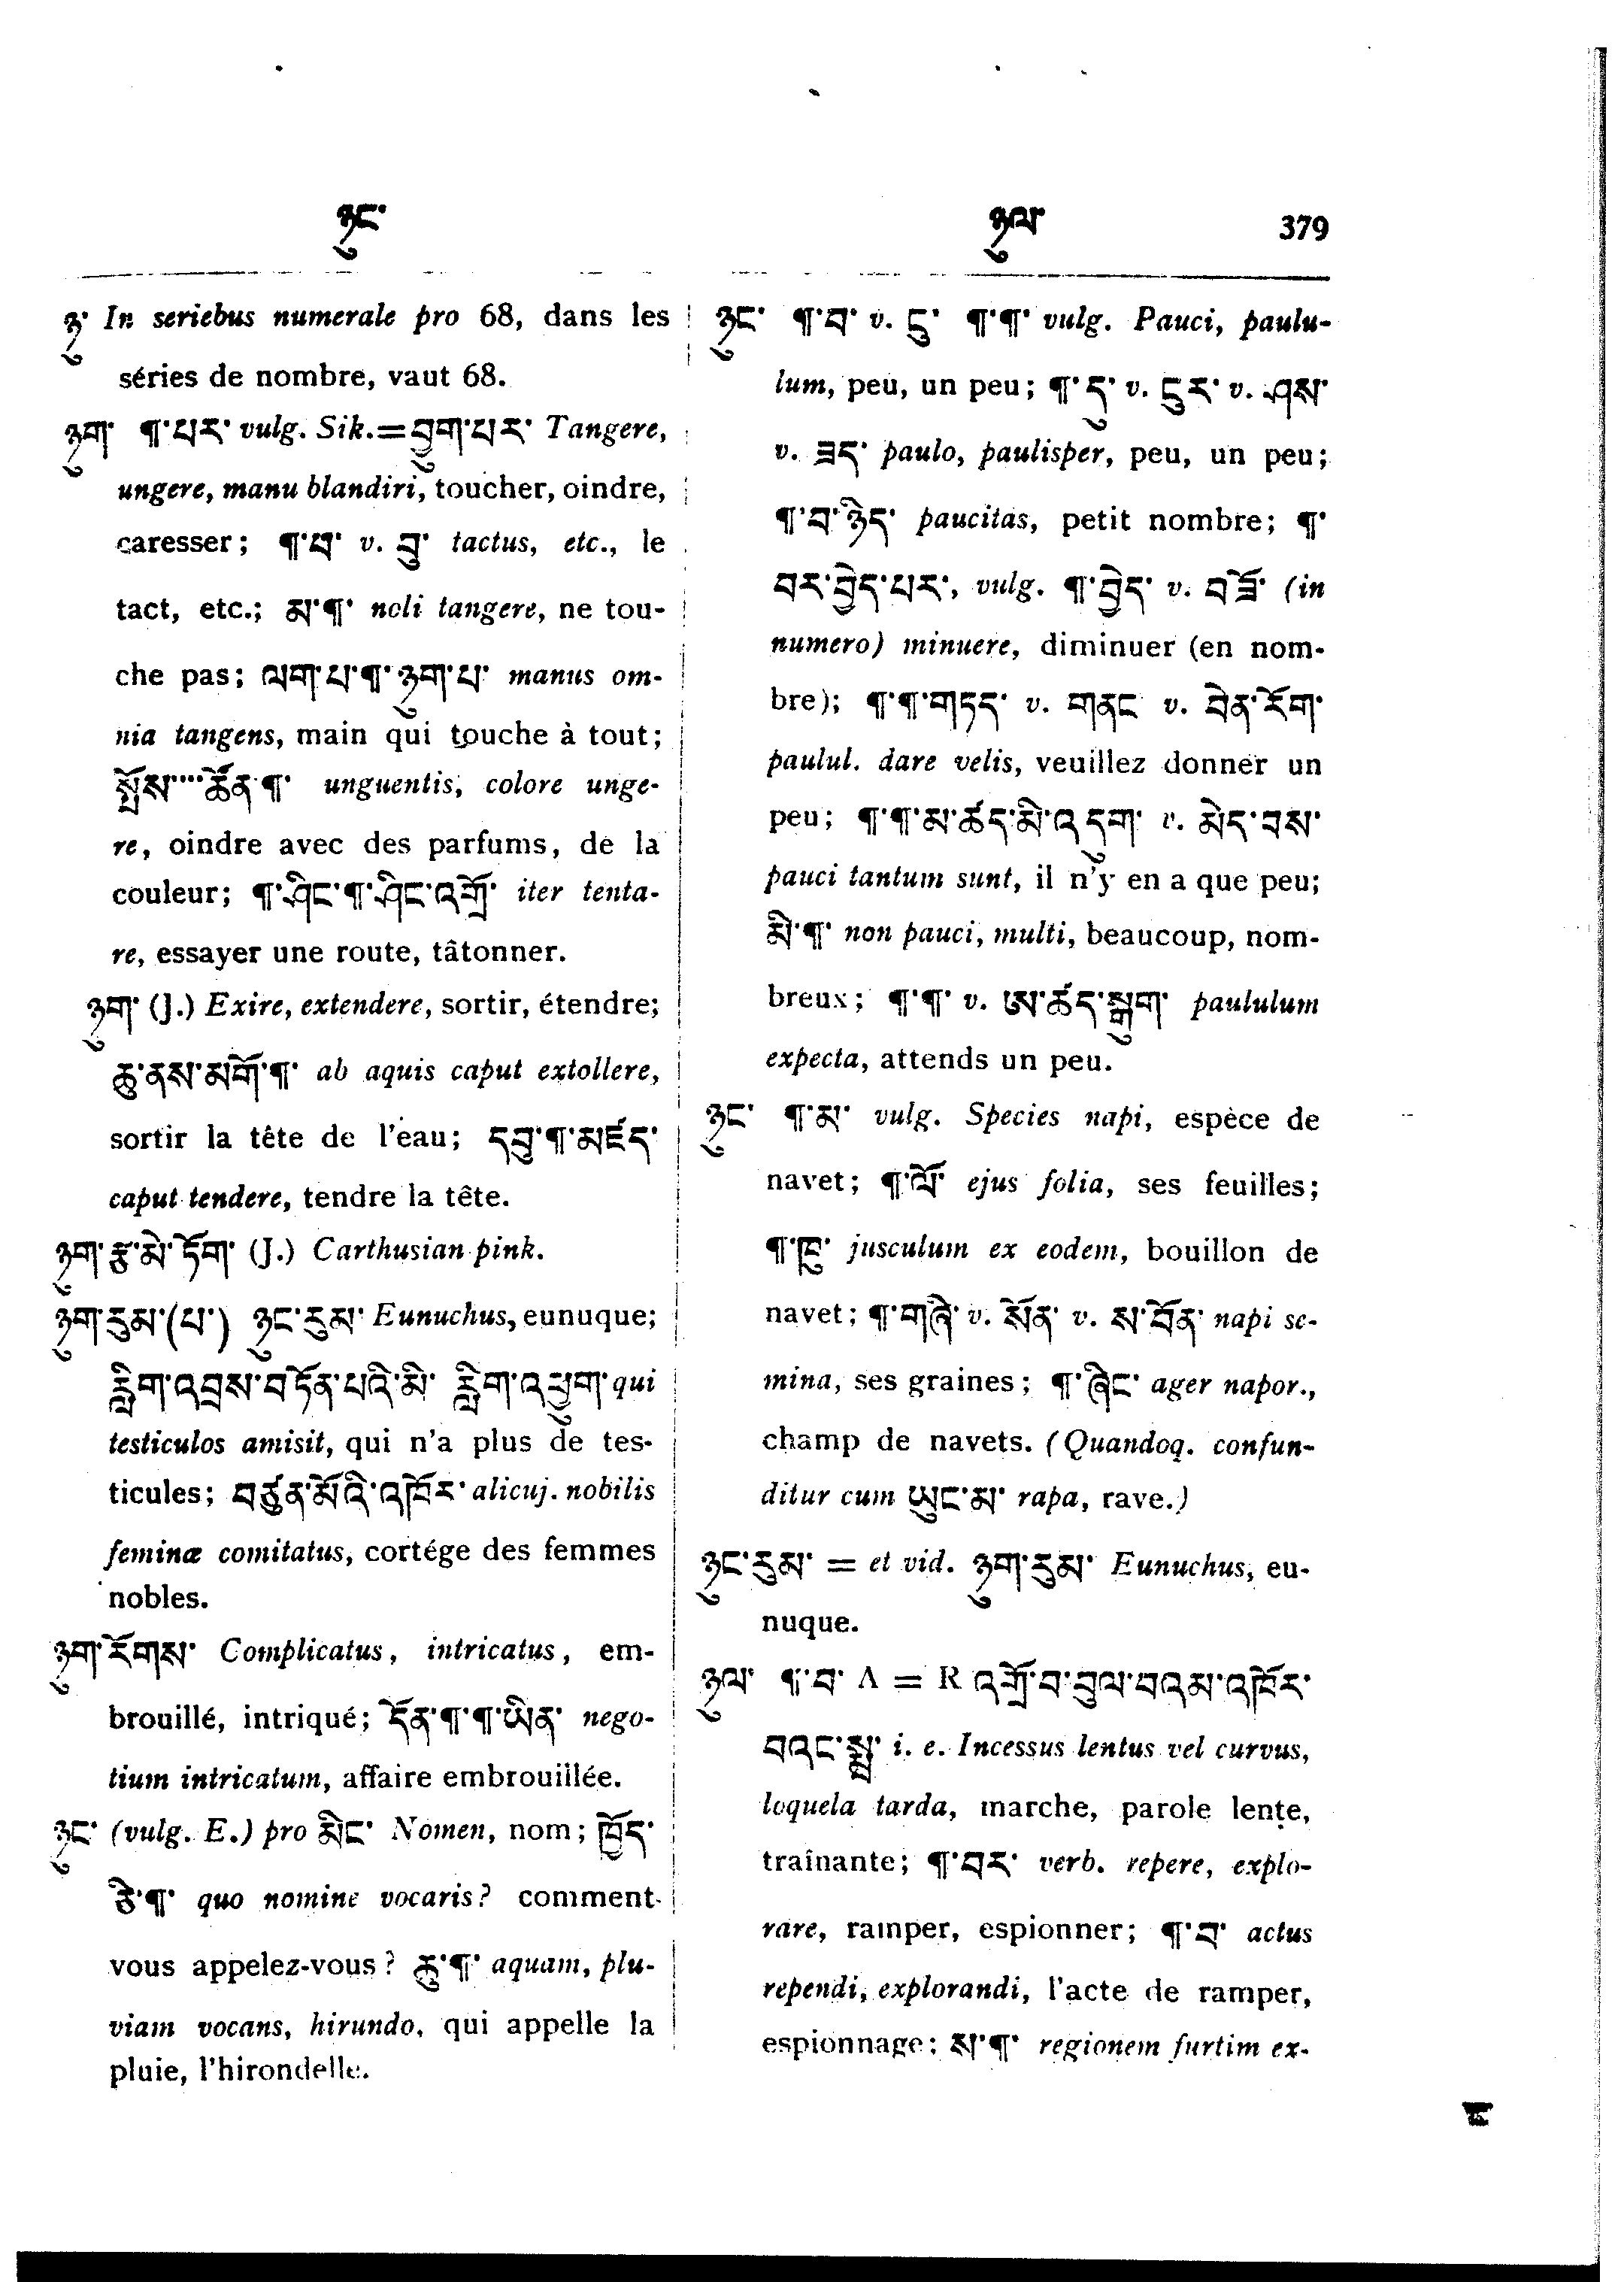 ཉུང་ ཉུལ་ 379
ཉུ་ In seriebus numerale pro 68, dans les
séries de nombre, vaut 68.
ཉུག་ ¶་པར་ vulg. Sik.=བྱུག་པར་ Tangere,
ungere, manu blandiri, toucher, oindre,
caresser; ¶་པ་ v. བྱུ་ tactus, etc., le
tact, etc.; མ་¶་ noli tangere, ne tou-
che pas; ལག་པ་¶་ཉུག་པ་ manus om-
nia tangens, main qui touche à tout;
སྤོས་...ཚོན་¶་ unguentis, colore unge-
re, oindre avec des parfums, de la
couleur; ¶་ཤིང་¶་ཤིང་འགྲོ་ iter tenta-
re, essayer une route, tâtonner.
ཉུག་ (J.) Exire, extendere, sortir, étendre;
ཆུ་ནས་མགོ་¶་ ab aquis caput extollere,
sortir la tête de l'eau; དབུ་¶་མཛད་
caput tendere, tendre la tête.
ཉུག་རྩ་མེ་ཏོག་ (J.) Carthusian pink.
ཉུག་རུམ་(པ་) ཉུང་རུམ་ Eunuchus, eunuque;
རླིག་འབྲས་བཏོན་པའི་མི་ རླིག་འཕྱུག་ qui
testiculos amisit, qui n'a plus de tes-
ticules; བཙུན་མོའི་འཁོར་ alicuj. nobilis
feminæ comitatus, cortége des femmes
nobles.
ཉུག་རོགས་ Complicatus, intricatus, em-
brouillé, intriqué; དོན་¶་¶་ཡིན་ nego-
tium intricatum, affaire embrouillée.
ཉུང་ (vulg. E.) pro མིང་ Nomen, nom; ཁྱོད་
ཅི་¶་ quo nomine vocaris? comment
vous appelez-vous? ཆུ་¶་ aquam, plu-
viam vocans, hirundo, qui appelle la
pluie, l'hirondelle.
ཉུང་ ¶་བ་ v. ངུ་ ¶་¶་ vulg. Pauci, paulu-
lum, peu, un peu; ¶་དུ་ v. ངུར་ v. ཤས་
v. ཟད་ paulo, paulisper, peu, un peu;
¶་བ་ཉིད་ paucitas, petit nombre; ¶་
བར་བྱེད་པར་, vulg. ¶་བྱེད་ v. བཟོ་ (in
numero) minuere, diminuer (en nom-
bre); ¶་¶་གཏད་ v. གནང v. བིན་རོག་
paulul. dare velis, veuillez donner un
peu; ¶་¶་མ་ཚད་མི་འདུག་ v. མེད་བས་
pauci tantum sunt, il n'y en a que peu;
མི་¶་ non pauci, multi, beaucoup, nom-
breux; ¶་¶་ v. ཨ་ཚད་སྒུག་ paululum
expecta, attends un peu.
ཉུང་ ¶་མ་ vulg. Species napi, espèce de
navet; ¶་ལོ་ ejus folia, ses feuilles;
¶་ཁུ་ jusculum ex eodem, bouillon de
navet; ¶་གཞི་ v. སོན་ v. ས་བོན་ napi se-
mina, ses graines; ¶་ཞིང་ ager napor.,
champ de navets. (Quandoq. confun-
ditur cum ཡུང་མ་ rapa, rave.)
ཉུང་རུམ་ = et vid. ཉུག་རུམ་ Eunuchus, eu-
nuque.
ཉུལ་ ¶་བ་ A = R འགྲོ་བ་བུལ་བའམ་འཁོར་
བའང་སྨྲ་ i. e. Incessus lentus vel curvus,
loquela tarda, marche, parole lente,
traînante; ¶་བར་ verb. repere, explo-
rare, ramper, espionner; ¶་བ་ actus
rependi, explorandi, l'acte de ramper,
espionnage; ས་¶་ regionem furtim ex-